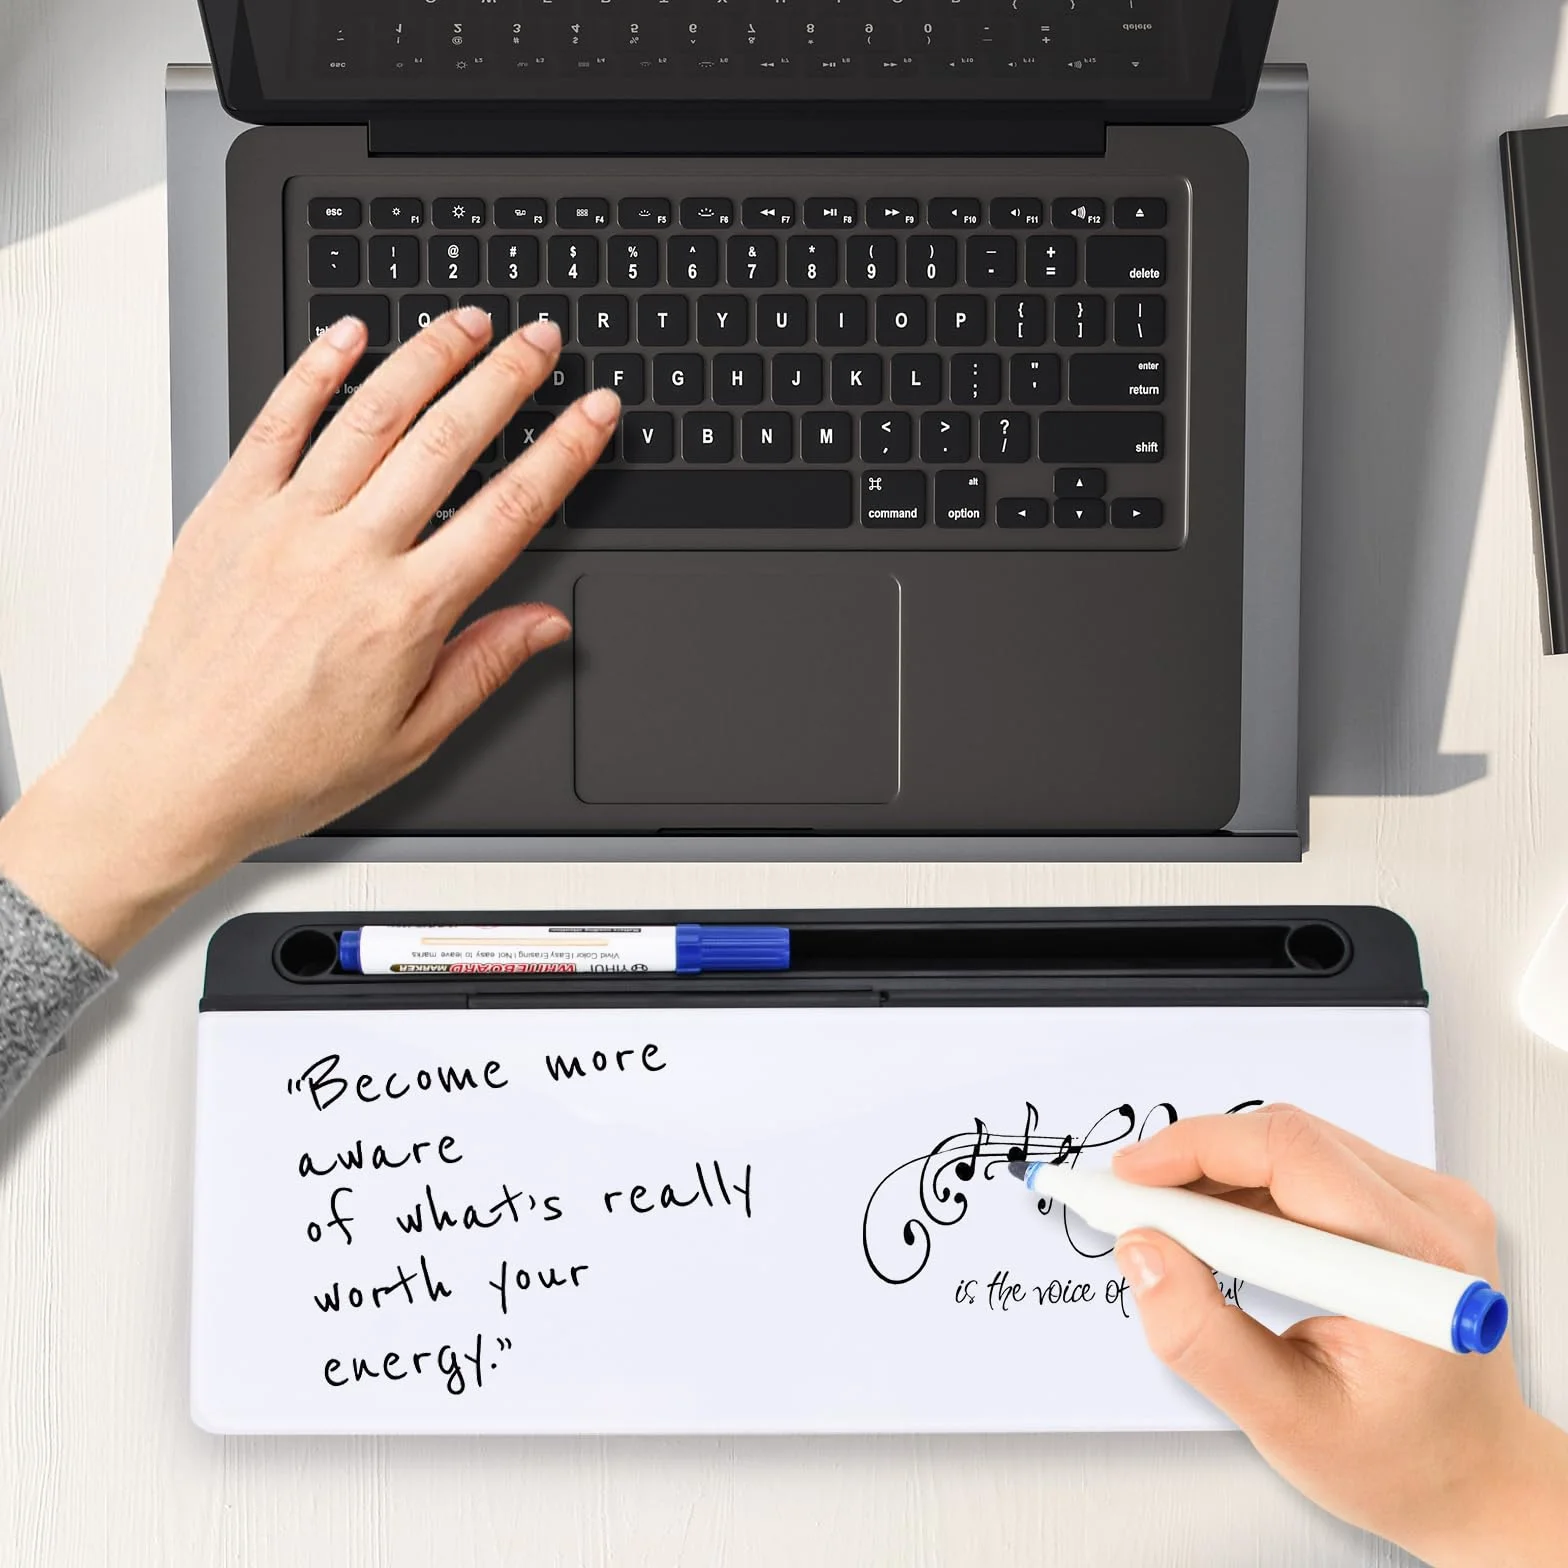 esc F1 F2 F3 F4 F5 F6 F7 F8 F9 F10 F11 F12
~ ! @ # $ % ^ & * ( ) — +
` 1 2 3 4 5 6 7 8 9 0 - = delete
Q E R T Y U I O P { [ } ] | \
D F G H J K L : ; " ' enter return
X V B N M < , > . ? / shift
command alt option
YIHUI WHITEBOARD MARKER
Vivid Color | Easy Erasing | Not easy to leave marks
"Become more
aware
of what's really
worth your
energy."
is the voice of